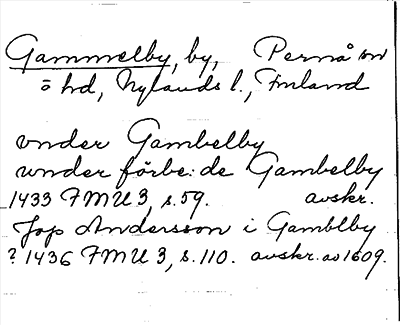 Gammelby, by, Pernå sn
ö hd, Nylands l., Finland
vnder Gambelby
wnder förbe:de Gambelby
1433 FMU 3, s. 59. avskr.
Jop Andersson i Gamblby
? 1436 FMU 3, s. 110. avskr. av 1609.